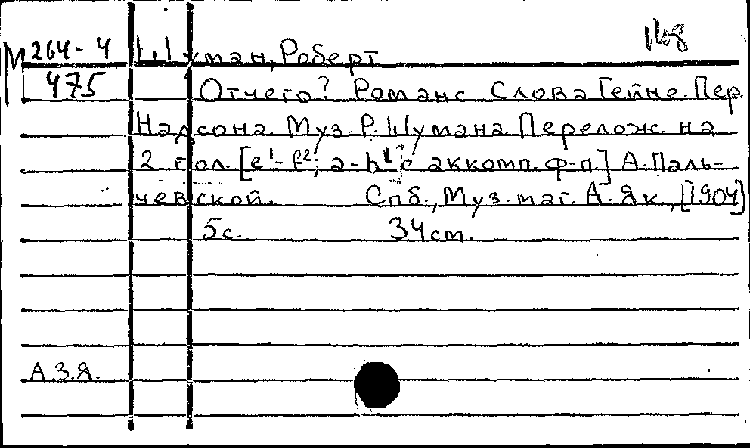 168
М 264-4 Шуман, Роберт
475 Отчего? Романс. Слова Гейне. Пер.
Надсона. Муз. Р. Шумана. Перелож. на
2 гол. [e¹-f²; a-h¹ с аккомп. ф-п.] А. Паль-
чевской. Спб., Муз. маг. А. Як, [1904]
5с. 34см.
А.З.Я.